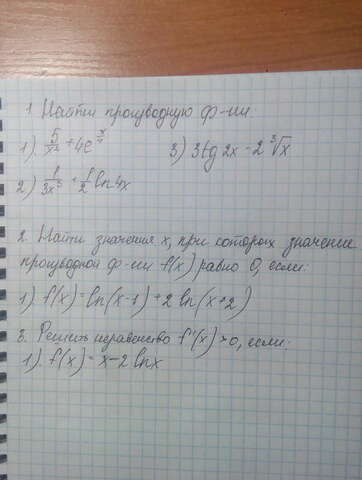 1. Найти производную ф-ии.
1) 5/x² + 4e^(x/4)   3) 3tg 2x - 2 ∛x
2) 1/3x³ + 1/2 ln 4x
2. Найти значения x, при которых значение
производной ф-ии f(x) равно 0, если:
1) f(x) = ln(x-1) + 2 ln(x+2)
3. Решить неравенство f'(x) > 0, если:
1). f(x) = x - 2 lnx